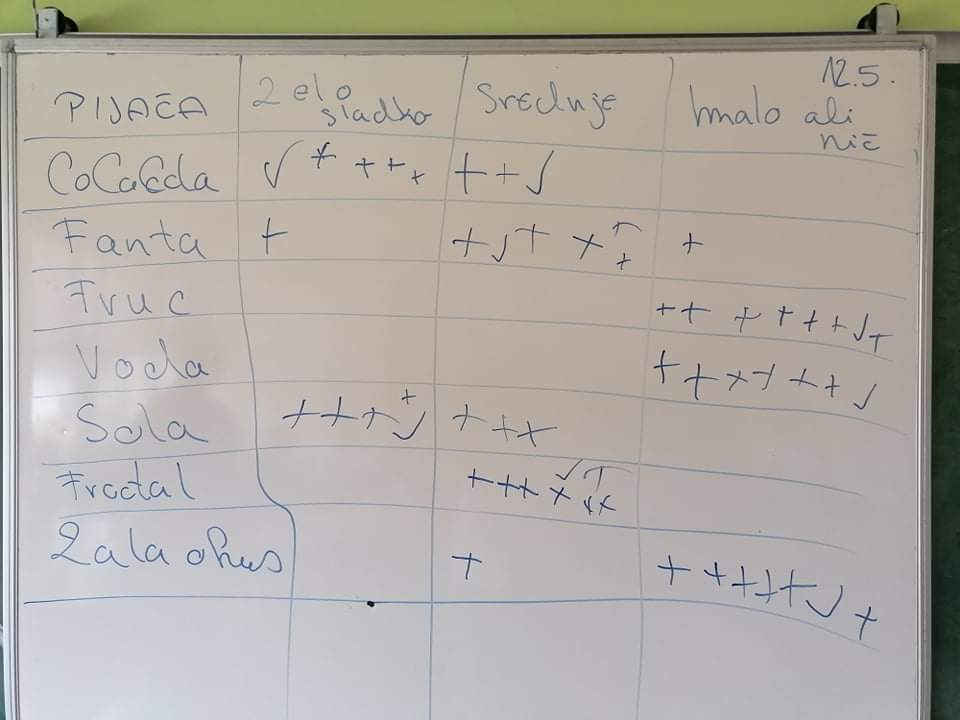 12.5.
PIJAČA	Zelo sladko	Srednje	malo ali nič
CoCaCola	✓ + + + +	+ + ✓
Fanta	+	+ ✓ + + + +	+
Fruc			+ + + + + + ✓ +
Voda			+ + + + + + ✓
Sola	+ + + + ✓	+ + +
Fractal		+ + + + ✓ + + +
Zala okus		+	+ + + + + ✓ +